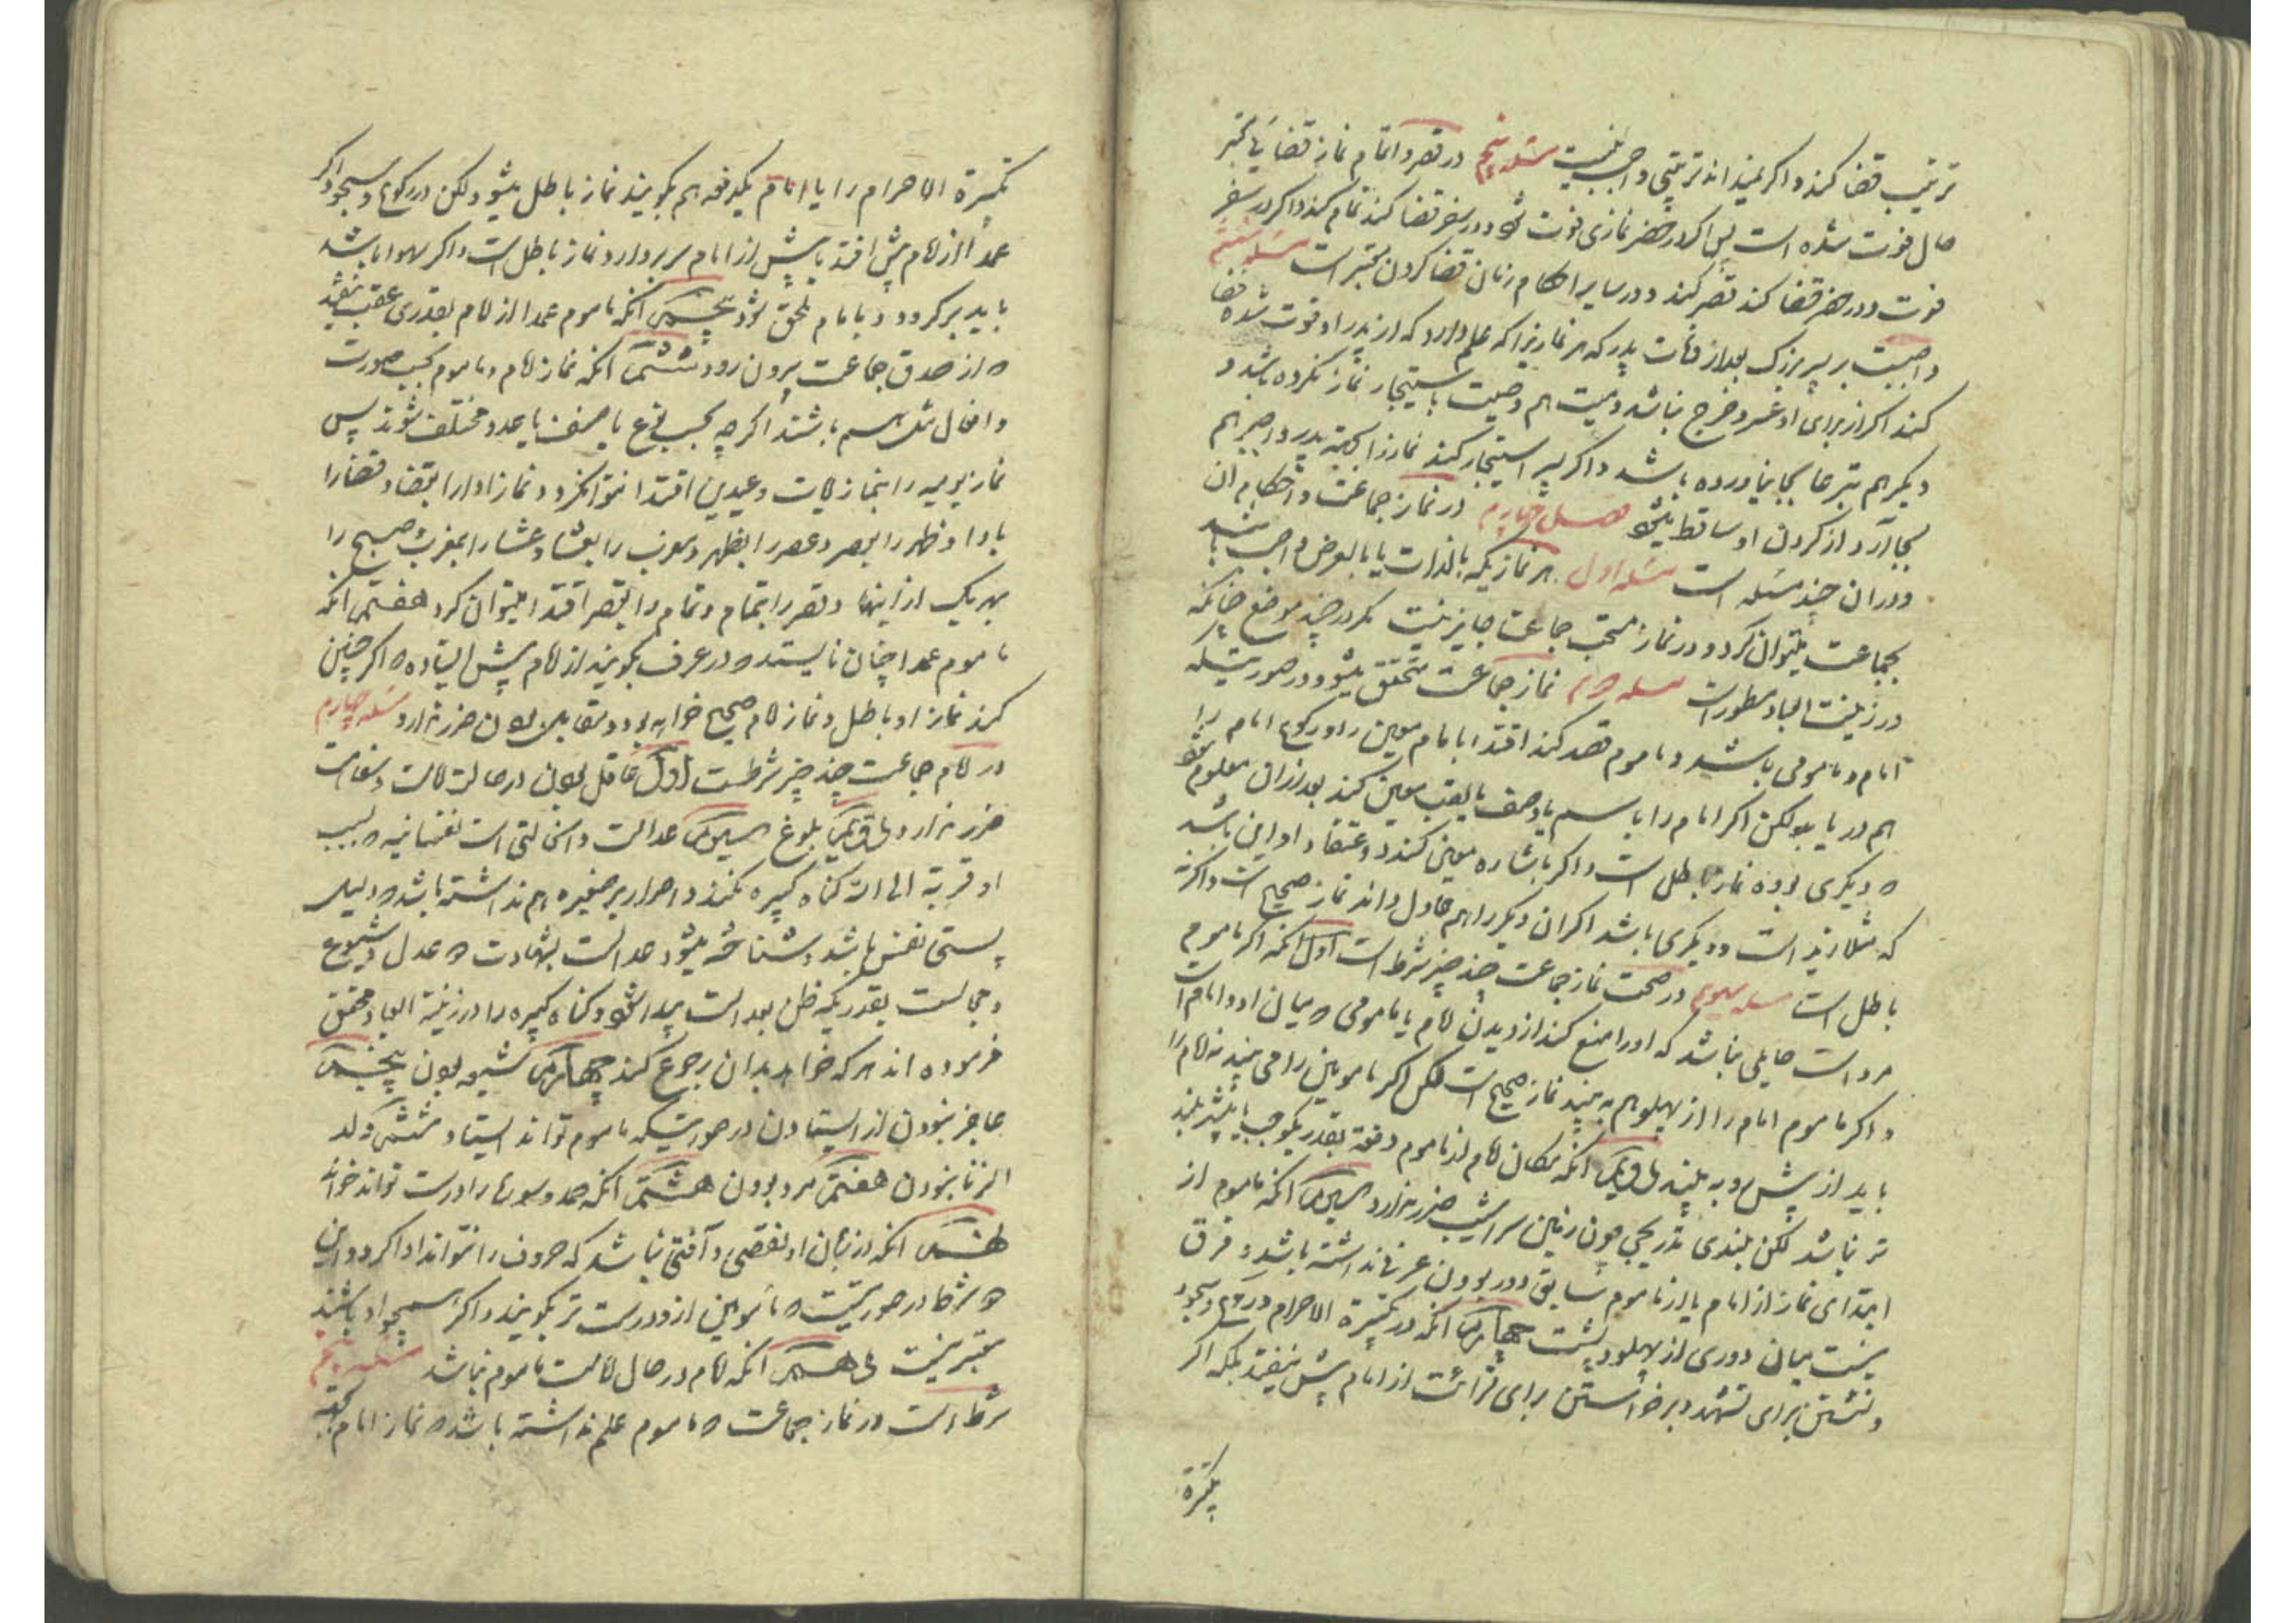 ترتیب قضا کند و اگر نمیداند ترتیبی واجب نیست مسئله پنجم در قصر و اتمام نماز قضا یا معتبر
حال فوت شده است پس اگر در حضر نمازی فوت شود و در سفر قضا کند تمام کند و اگر در سفر
فوت و در حضر قضا کند قصر کند و در سایر احکام زمان قضا کردن معتبر است مسئله ششم
واجبست بر پسر بزرگ بعد از وفات پدر که هر نمازیرا که علم دارد که از پدر او فوت شده قضا
کند اگر از برای او عسر و حرج نباشد و میت هم وصیت باستیجار نماز نکرده باشد و
دیگر هم تبرعا بجا نیاورده باشد و اگر پسر استیجار کند نماز را به نیت پدر و اجیر هم
بجا آرد از کردن او ساقط میشود فصل چهارم در نماز جماعت و احکام ان
و در ان چند مسئله است مسئله اول هر نمازیکه بالذات یا بالعرض واجب باشد
بجماعت میتوان کرد و در نماز مستحب جماعت جایز نیست مگر در چند موضع چنانکه
در زینت العباد مسطور است مسئله دوم نماز جماعت متحقق میشود در صورتیکه
امام و مامومی باشد و ماموم قصد کند اقتدا بامام معین را و رکوع امام را
هم دریابد لکن اگر امام را باسم یا وصف یا لقب معین کند بعد از ان معلوم شود
ه دیگری بوده نماز باطل است و اگر باشاره معین کند و اعتقاد او این باشد
که مثلا زید است و دیگری باشد اگر ان دیگر را هم عادل داند نماز صحیح است و اگرنه
باطل است مسئله سوم در صحت نماز جماعت چند چیز شرط است اول انکه اگر ماموم
مرد است حایلی نباشد که او را منع کند از دیدن امام یا مامومی ه میان او و امام است
و اگر ماموم امام را از پهلو هم به بیند نماز صحیح است لکن اگر مامومین را می بیند نه امام را
باید از پیش رو به بیند دویم انکه مکان امام از ماموم دفعة بقدر یکوجب یا بیشتر بلند
تر نباشد لکن بلندی تدریجی چون زمین سراشیب ضرر ندارد سیم انکه ماموم از
ابتدای نماز از امام یا از ماموم سابق دور بودن عرفی نداشته باشد و فرق
نیست میان دوری از پهلو و پشت چهارم انکه در تکبیرة الاحرام و رکوع و سجود
و نشستن برای تشهد و برخواستن برای قرائت از امام پیش نیفتد بلکه اگر
تکبیرة
تکبیرة الاحرام را با امام یکدفعه هم بگویند نماز باطل میشود لکن در رکوع و سجود اگر
عمدا از امام پیش افتد یا پیش از امام سر بردارد نماز باطل است و اگر سهوا باشد
باید برگردد و بامام ملحق شود پنجم انکه ماموم عمدا از امام بقدری عقب نیفتد
ه از صدق جماعت بیرون رود ششم انکه نماز امام و ماموم بحسب صورت
و افعال مثل هم باشند اگر چه بحسب نوع یا صنف یا عدد مختلف شوند پس
نماز یومیه را بنماز آیات و عیدین اقتدا نتوانکرد و نماز ادا را بقضا و قضا را
بادا و ظهر را بعصر و عصر را بظهر و مغرب را بعشا و عشا را بمغرب و صبح را
بهر یک از اینها و قصر را بتمام و تمام را بقصر اقتدا میتوان کرد هفتم انکه
ماموم عمدا چنان نایستد ه در عرف بگویند از امام پیش ایستاده ه اگر چنین
کند نماز او باطل و نماز امام صحیح خواهد بود و مقابل بودن ضرر ندارد مسئله چهارم
در امام جماعت چند چیز شرطست اول عاقل بودن در حالت امامت و سفاهت
ضرر ندارد دویم بلوغ سیم عدالت و ان حالتی است نفسانیه ه بسبب
او قربة الی الله گناه کبیره نکند و اصرار بر صغیره هم نداشته باشد ه دلیل
پستی نفس باشد و شناخته میشود عدالت بشهادت ه عدل و شیوع
و مجالست بقدریکه ظن بعدالت پیدا شود و گناه کبیره را در زینة العباد محقق
فرموده اند هر که خواهد بدان رجوع کند چهارم شیعه بودن پنجم
عاجز نبودن از ایستادن در صورتیکه ماموم تواند ایستاد ششم ولد
الزنا نبودن هفتم مرد بودن هشتم انکه حمد و سوره را درست تواند خواند
نهم انکه در زبان او نقصی و آفتی نباشد که حروف را نتواند ادا کرد و این
ه شرط در صورتیست ه مامومین از او درست تر بگویند و اگر همچو او باشند
معتبر نیست دهم انکه امام در حال امامت ماموم نباشد مسئله پنجم
شرط است در نماز جماعت ه ماموم علم نداشته باشد ه نماز امام